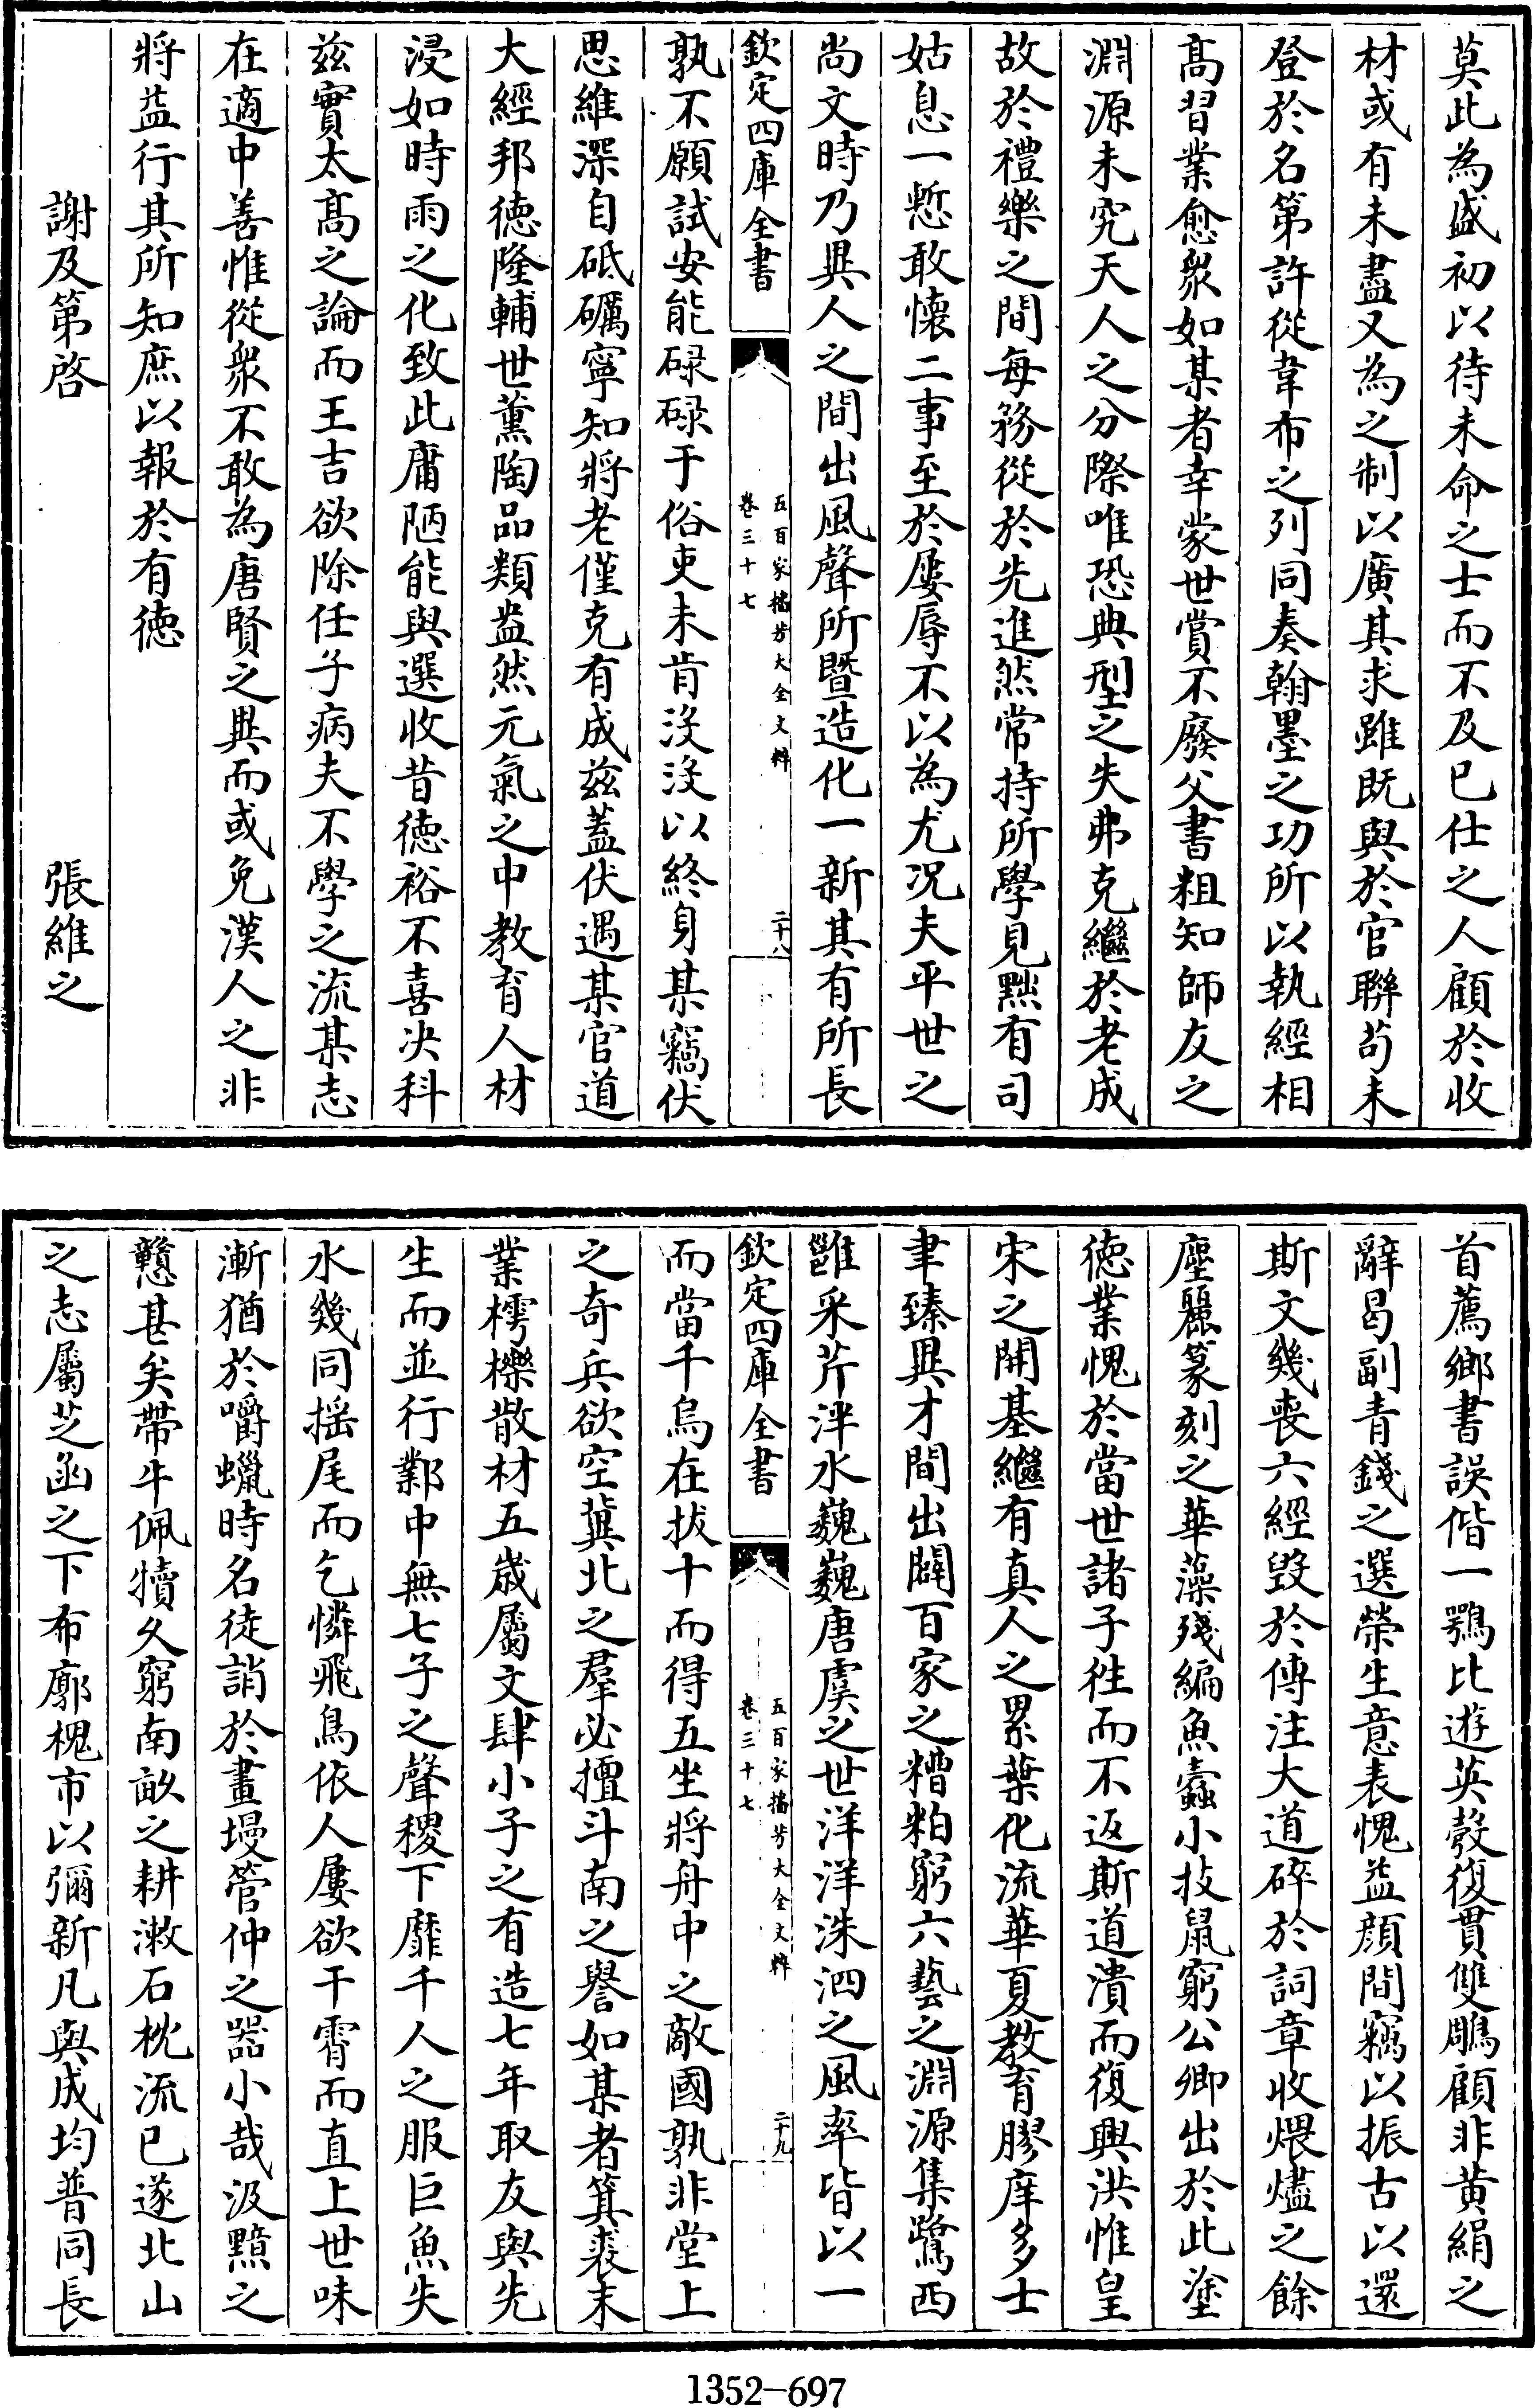 莫此為盛初以待未命之士而不及已仕之人顧於收
材或有未盡又為之制以廣其求雖既與於官聯苟未
登於名第許從韋布之列同奏翰墨之功所以執經相
髙習業愈衆如某者幸蒙世賞不廢父書粗知師友之
淵源未究天人之分際唯恐典型之失弗克繼於老成
故於禮樂之間每務從於先進然常持所學見黜有司
姑息一慙敢懐二事至於屢辱不以為尤况夫平世之
尚文時乃異人之間出風聲所暨造化一新其有所長
欽定四庫全書
五百家播芳大全文粹
卷三十七
二十八
孰不願試安能碌碌于俗吏未肯沒沒以終身某竊伏
思維深自砥礪寧知將老僅克有成兹蓋伏遇某官道
大經邦徳隆輔世薫陶品類盎然元氣之中教育人材
浸如時雨之化致此庸陋能與選收昔徳裕不喜决科
兹實太髙之論而王吉欲除任子病夫不學之流某志
在適中善惟從衆不敢為唐賢之異而或免漢人之非
將益行其所知庶以報於有徳
謝及第啓　　張維之
首薦鄉書誤偕一鶚比遊英彀復貫雙鵰顧非黄絹之
辭曷副青錢之選榮生意表愧益顔間竊以振古以還
斯文幾喪六經毀於傳注大道碎於詞章收煨燼之餘
塵麗篆刻之華藻殘編魚蠧小技鼠窮公卿出於此塗
徳業愧於當世諸子徃而不返斯道潰而復興洪惟皇
宋之開基繼有真人之累葉化流華夏教育膠庠多士
聿臻異才間出闢百家之糟粕窮六藝之淵源集鷺西
雝采芹泮水巍巍唐虞之世洋洋洙泗之風率皆以一
欽定四庫全書
五百家播芳大全文粹
卷三十七
二十九
而當千烏在拔十而得五坐將舟中之敵國孰非堂上
之奇兵欲空冀北之羣必擅斗南之譽如某者箕裘末
業樗櫟散材五歳屬文肆小子之有造七年取友與先
生而並行鄴中無七子之聲稷下靡千人之服巨魚失
水幾同揺尾而乞憐飛鳥依人屢欲干霄而直上世味
漸猶於嚼蠟時名徒誚於畫墁管仲之器小哉汲黯之
戇甚矣帶牛佩犢久窮南畝之耕漱石枕流已遂北山
之志屬芝函之下布廓槐市以彌新凡與成均普同長
1352—697